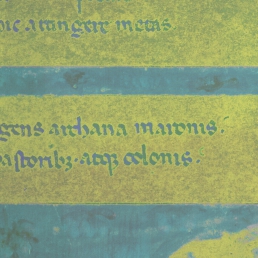 hic attingere metas
gens archana maronis.
pastoribꝫ·atqꝫ colonis·